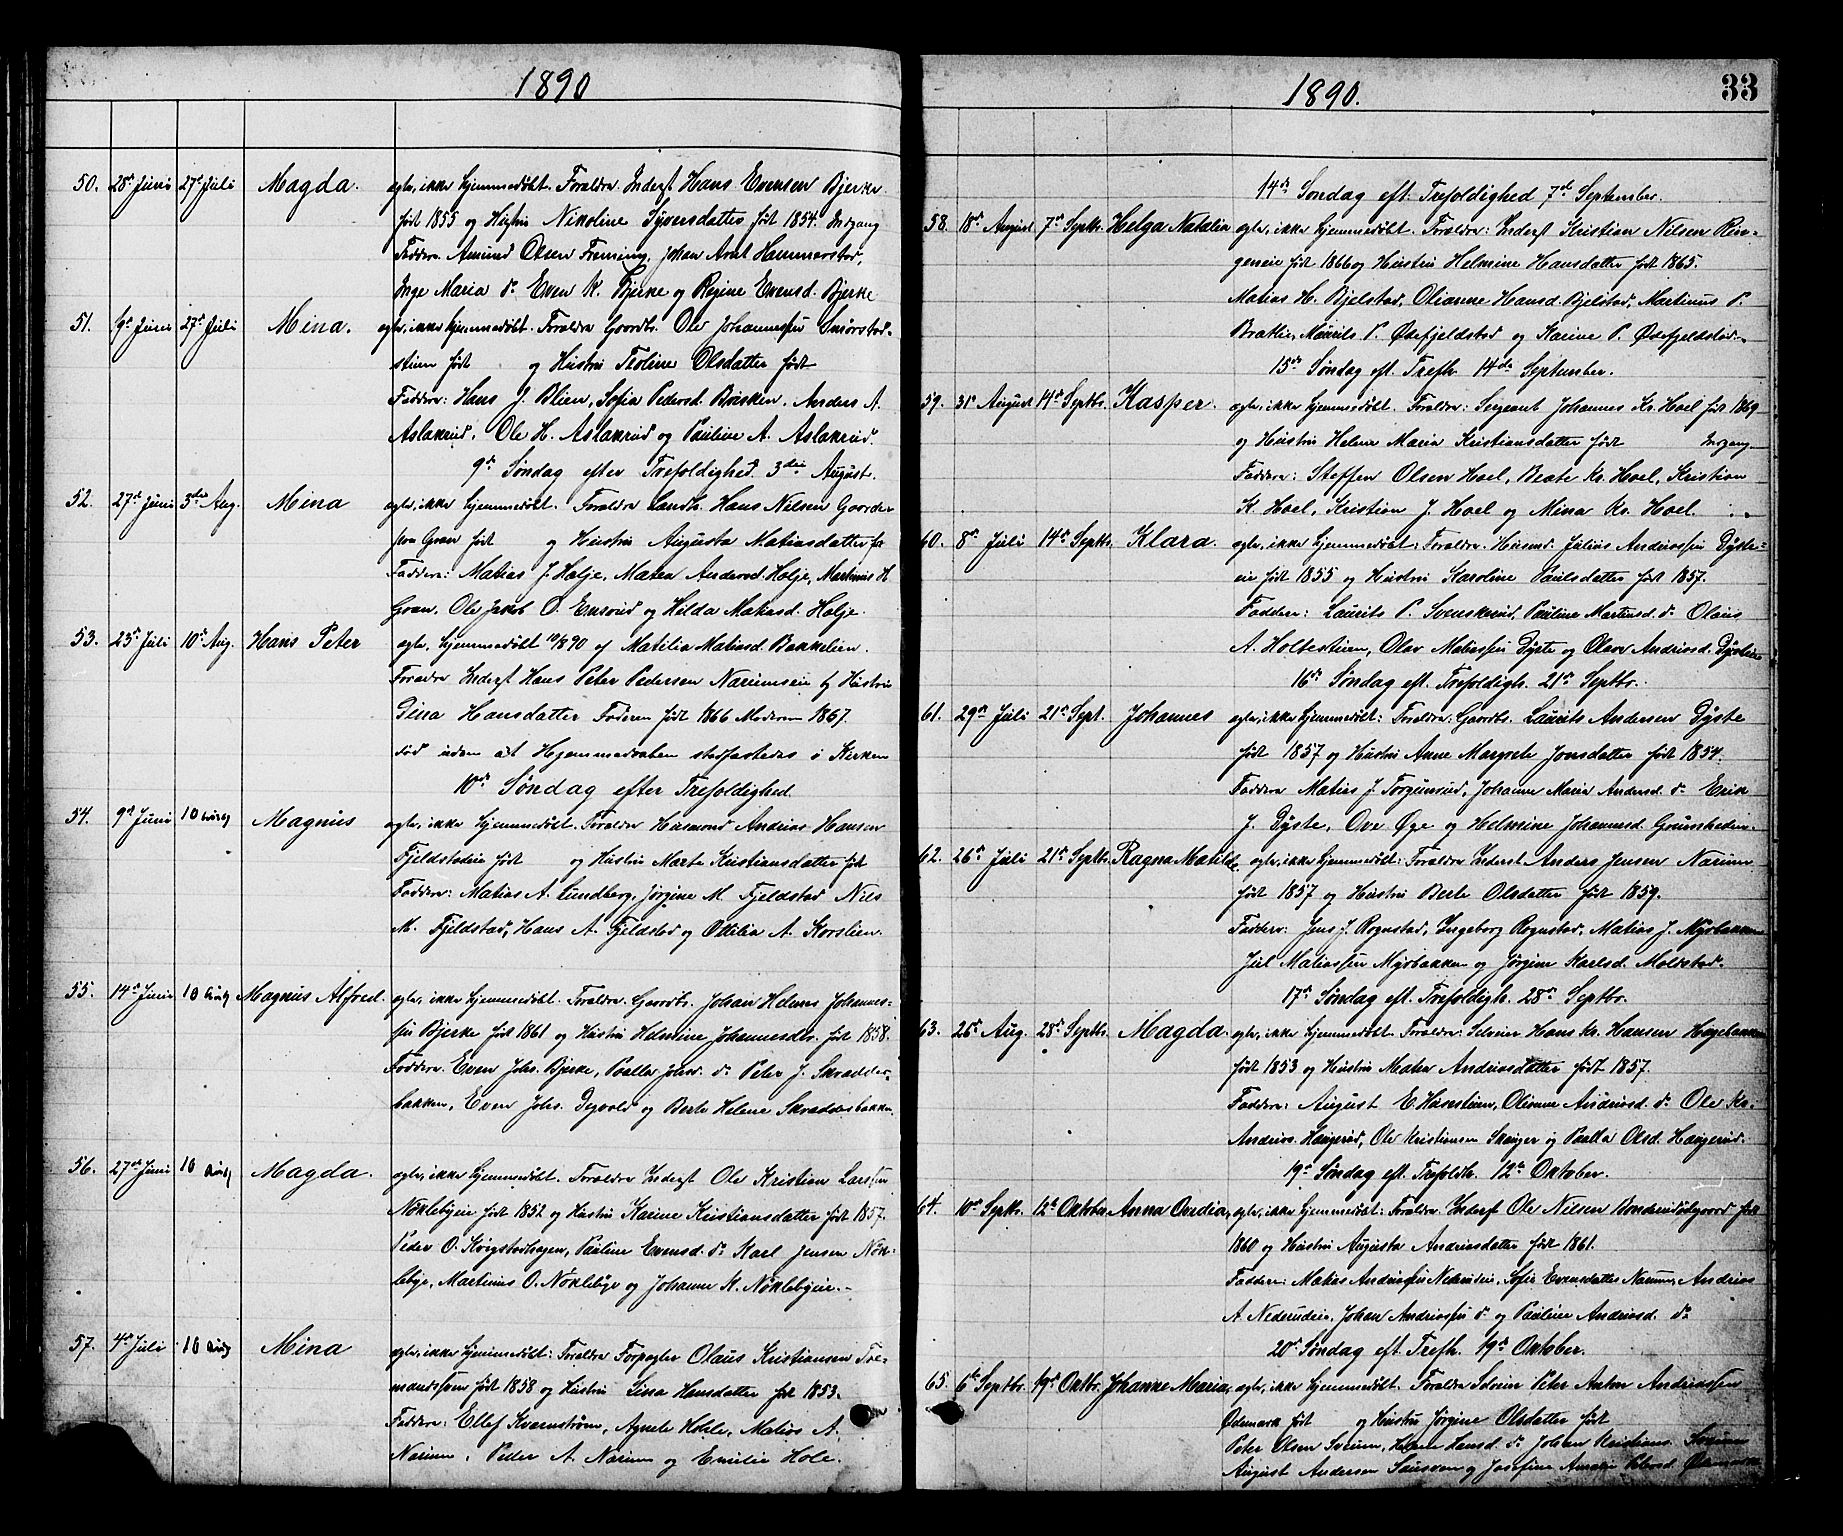 1890
50. 28de Juni 27de Juli Magda. ægte, ikke hjemmedøbt. Forældre Inderst Hans Evensen Bjerke
født 1855 og Hustru Nikoline Syversdatter født 1854. Indgang
Faddere. Amund Olsen Fremming, Johan Arnt Hammerstad,
Inge Maria do Even K. Bjerke og Regine Evensd. Bjerke
51. 19de Juni 27de Juli Mina. ægte, ikke hjemmedøbt. Forældre Gaardbr. Ole Johannessen
stuen født og Hustru Teoline Olsdatter født
Faddere: Hans J. Blien, Sofia Pedersd. Anders A.
Aslakrud, Ole H. Aslakrud og Pauline A. Aslakrud.
9de Søndag efter Trefoldighed. 3die August.
52. 27de Juni 3die Aug. Mina ægte, ikke hjemmedøbt. Forældre Landh. Hans Nilsen Gaarder
fra Gran født og Hustru Augusta Matiasdatter
Faddere: Matias J. Holje, Maten Andersd. Holje, Martinus H
Gran, Ole Jakob O. Enerud og Hilda Matiasd. Holje.
53. 23de Juli 10de Aug. Hans Peter ægte, hjemmedøbt 10/8 90 af Matilia Matiasd. Bakkelien.
Forældre Inderst Hans Peter Pedersen Narumseie og Hustru
Dina Hansdatter Faderen født 1866 Moderen 1867.
Død uden at Hjemmedaaben stadfæstedes i Kirken
10de Søndag efter Trefoldighed.
54. 9de Juni 10 Aug Magnus ægte, ikke hjemmedøbt. Forældre Husmand Andreas Hansen
Fjeldstadeie født og Hustru Marte Kristiansdatter født
Faddere: Matias A. Lundberg, Jørgine M. Fjeldstad Nils
M. Fjeldstad, Hans A. Fjeldstad og Otilia A. Korslien.
55. 14de Juni 10 Aug Magnus Alfred. ægte, ikke hjemmedøbt. Forældre Gaardbr. Johan Helmer Johannes-
sen Bjerke født 1861 og Hustru Helmine Johannesdtr. født 1858.
Faddere. Even Johs. Bjerke, Paulla Johsd. do Peter J. Skradder-
bakken, Even Johs. Degvold og Berte Helene Skradderbakken.
56. 27de Juni 10 Aug Magda. ægte, ikke hjemmedøbt. Forældre Inderst Ole Kristian Larssen
Nøklebyeie født 1852 og Hustru Karine Kristiansdatter født 1857.
Peder O. Kvigstadhagen, Pauline Evensd. do Karl Jensen Nøk-
lebye, Martinus O. Nøklebye og Johanne K. Nøklebyeie.
57. 4de Juli 10 Aug Mina ægte, ikke hjemmedøbt. Forældre Forpagter Olaus Kristiansen
født 1858 og Hustru Lina Hansdatter født 1853.
Faddere: Ellef Kværnstrøm, Agnete Hohle, Matias A.
Narum, Peder A. Narum og Emilie Hole.
1890. 33
14de Søndag eft. Trefoldighed 7de September.
58. 18de August 7de Septbr. Helga Natalia ægte, ikke hjemmedøbt. Forældre: Inderst Kristian Nilsen Rin-
geneie født 1866 og Hustru Helmine Hansdatter født 1865.
Matias H. Bjelstad, Olianne Hansd. Bjelstad, Martinus P.
Bratlie, Maurits P. Ødefjeldstad og Karine P. Ødefjeldstad.
15de Søndag eft. Trefh. 14de September.
59. 31te August 14de Septbr. Kasper. ægte, ikke hjemmedøbt. Forældre: Sergeant Johannes Kr. Hoel født 1869
og Hustru Helene Maria Kristiansdatter født Indgang
Faddere: Steffen Olsen Hoel, Beate Kr. Hoel, Kristian
K. Hoel, Kristian J. Hoel og Mina Kr. Hoel.
60. 8de Juli 14de Septbr. Klara. ægte, ikke hjemmedøbt: Forældre. Husmd. Julius Andreassen Dyste-
eie født 1855 og Hustru Karoline Paulsdatter født 1857.
Faddere: Laurits P. Svenskerud, Pauline Martinsd. do Olaus
A. Holtestuen, Olav Matiassen Dyste og Olave Andreasd. Dysteeie
16de Søndag eft. Trefoldigh. 21de Septbr.
61. 29de Juli 21de Sept. Johannes ægte, ikke hjemmedøbt: Forældre. Gaardbr. Laurits Andersen Dyste
født 1857 og Hustru Anne Margrete Jonsdatter født 1854.
Faddere Matias J. Torgunrud, Johanne Maria Andersd. do Erik
J. Dyste, Ove Øge og Helmine Johannesd. Grimsheden.
62. 26de Juli 21de Septbr. Ragna Matilde, ægte, ikke hjemmedøbt: Forældre Inderst Anders Jensen Narum
født 1857 og Hustru Berte Olsdatter født 1859.
Faddere: Jens J. Rognstad, Ingeborg Rognstad, Matias J. Myrbakken
Juel Matiassen Myrbakken og Jørgine Karlsd. Molstad.
17de Søndag eft. Trefoldigh. 28de Septbr.
63. 26de Aug. 28de Septbr. Magda. ægte, ikke hjemmedøbt. Forældre: Selveier Hans Kr. Hansen Hagebakken
født 1853 og Hustru Maten Andreasdatter født 1857.
Faddere: August E. Havestuen, Olianne Andreasd. do Ole Kr.
Andreas. Haugerud, Ole Kristiansen Skanger og Paulla Olsd. Haugerud.
19de Søndag eft. Trefoldh. 12te Oktober.
64. 10de Septbr. 12te Oktober Anna Ovidia, ægte, ikke hjemmedøbt: Forældre. Inderst Ole Nilsen født
1860 og Hustru Augusta Andreasdatter født 1861.
Faddere: Matias Andreassen Nederudeie, Sofie Evensdatter Narum, Andreas
A. Nederudeie, Johan Andreassen do og Pauline Andreasd. do
20de Søndag eft. Trefh. 19de Oktober.
65. 6te Septbr. 19de Oktbr. Johanne Maria, ægte, ikke hjemmedøbt. Forældre Selveier Peter Anton Andreassen
Ødemark født og Hustru Jørgine Olsdatter født
Peter Olsen Sørum, Helene Hansd. do Johan Kristians. Sørum
August Andersen og Josefine Amalie Pedersd. Ødemark